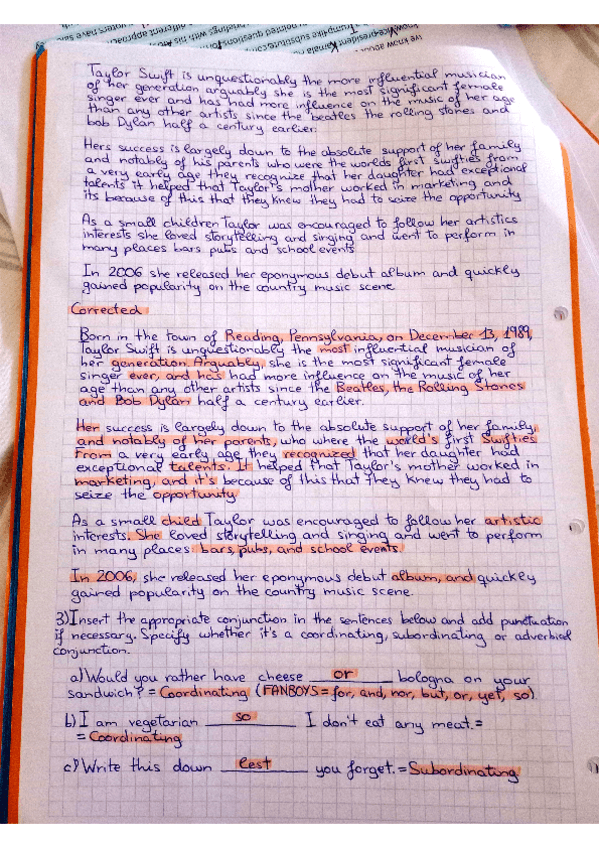 we know abou
Vice president Kamala
Trump-like
substitute
pointed questions for
ndings, with his
different approach
have
Taylor Swift is unquestionably the more influential musician
of her generation arguably she is the most significant female
singer ever and has had more influence on the music of her age
than any other artists since the beatles the rolling stones and
bob Dylan half a century earlier.
Hers success is largely down to the absolute support of her family
and notably of his parents who were the worlds first swifties from
a very early age they recognize that her daughter had exceptional
talents it helped that Taylor's mother worked in marketing and
its because of this that they knew they had to seize the opportunity
As a small children Taylor was encouraged to follow her artistics
interests she loved storytelling and singing and went to perform in
many places bars pubs and school events
In 2006 she released her eponymous debut album and quickly
gained popularity on the country music scene
Corrected
Born in the town of Reading, Pennsylvania, on December 13, 1989,
Taylor Swift is unquestionably the most influential musician of
her generation Arguably, she is the most significant female
singer ever, and has had more influence on the music of her
age than any other artists since the Beatles, the Rolling Stones
and Bob Dylan half a century earlier.
Her success is largely down to the absolute support of her family,
and notably of her parents, who where the world's first Swifties
From a very early age they recognized that her daughter had
exceptional talents. It helped that Taylor's mother worked in
marketing, and it's because of this that they knew they had to
seize the opportunity
As a small child Taylor was encouraged to follow her artistic
interests. She loved storytelling and singing and went to perform
in many places bars, pubs, and school events.
In 2006, she released her eponymous debut album, and quickly
gained popularity on the country music scene.
3) Insert the appropriate conjunction in the sentences below and add punctuation
if necessary. Specify whether it's a coordinating, subordinating or adverbial
conjunction.
a) Would you rather have cheese or bologna on your
sandwich? = Coordinating (FANBOYS = for, and, nor, but, or, yet, so)
b) I am vegetarian so I don't eat any meat. =
= Coordinating
c) Write this down lest you forget. = Subordinating